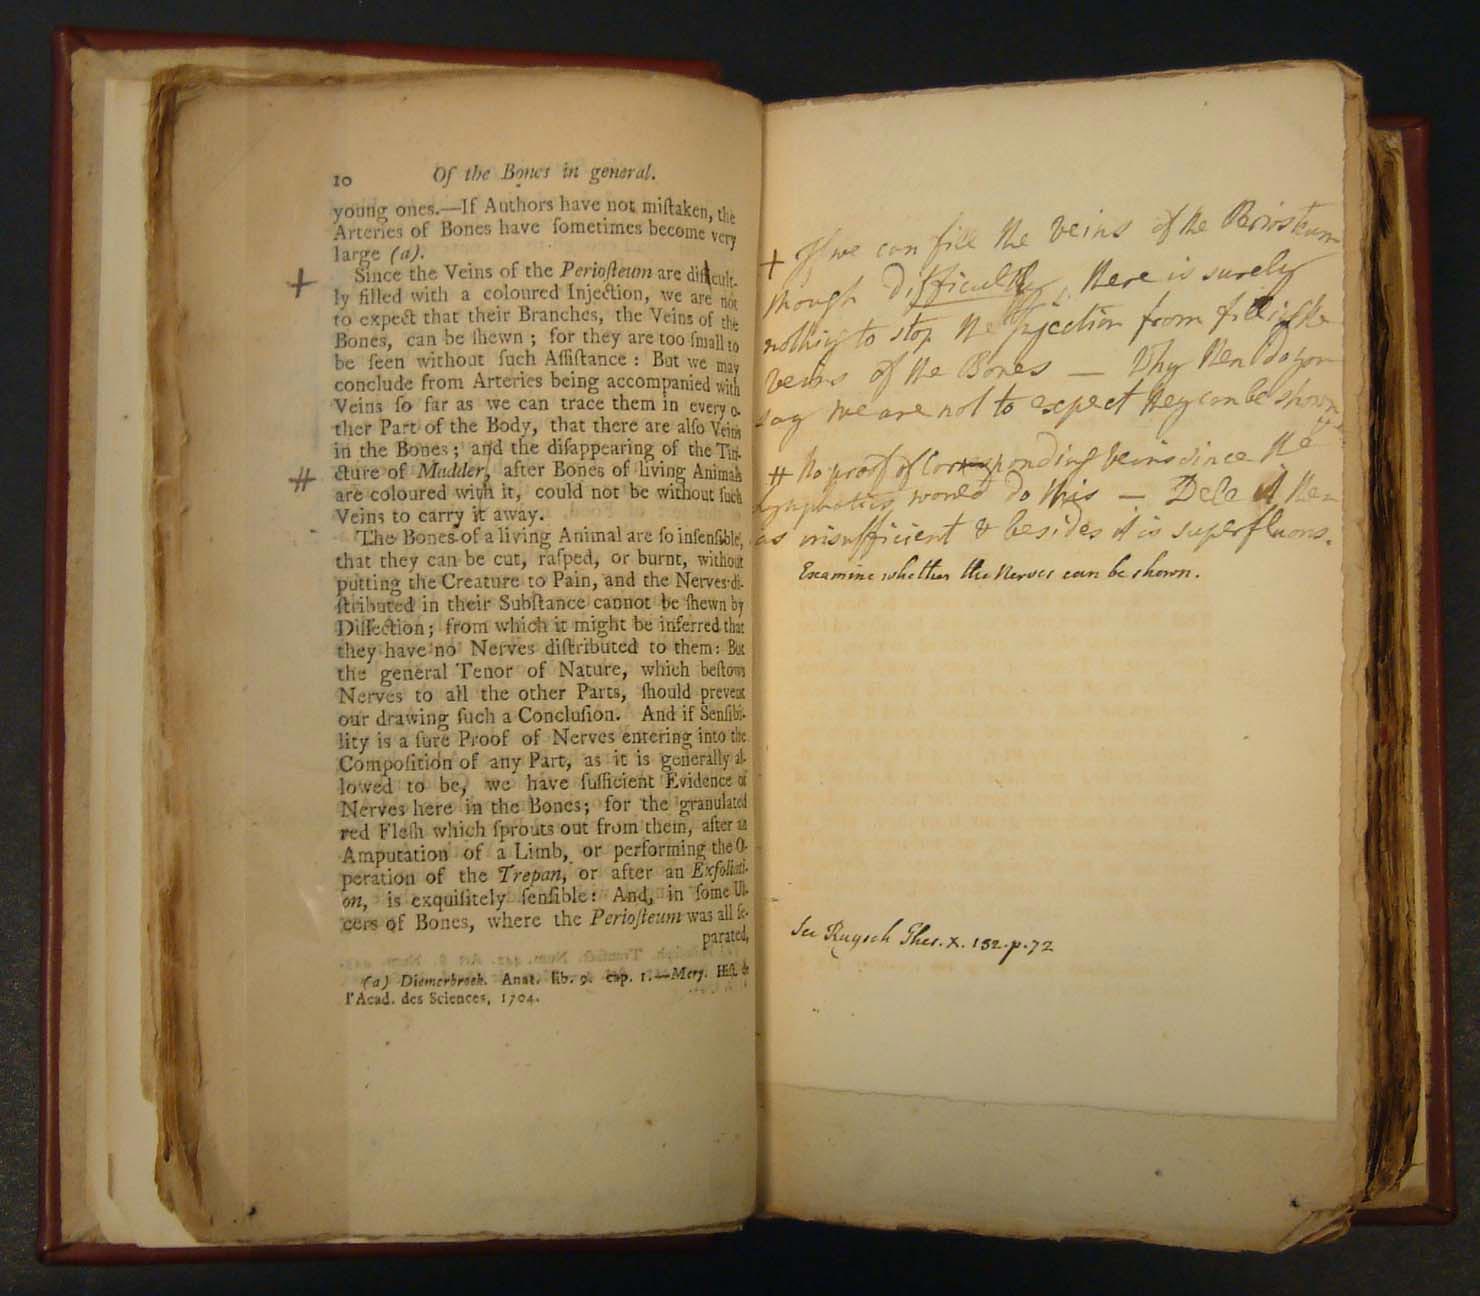 10 Of the Bones in general.
young ones.—If Authors have not miſtaken, the
Arteries of Bones have ſometimes become very
large (a).
+ Since the Veins of the Perioſteum are difficult-
ly filled with a coloured Injection, we are not
to expect that their Branches, the Veins of the
Bones, can be ſhewn ; for they are too ſmall to
be ſeen without ſuch Aſſiſtance : But we may
conclude from Arteries being accompanied with
Veins ſo far as we can trace them in every o-
ther Part of the Body, that there are alſo Veins
in the Bones ; and the diſappearing of the Tin-
# cture of Madder, after Bones of living Animals
are coloured with it, could not be without ſuch
Veins to carry it away.
The Bones of a living Animal are ſo inſenſible,
that they can be cut, raſped, or burnt, without
putting the Creature to Pain, and the Nerves di-
ſtributed in their Subſtance cannot be ſhewn by
Diſſection ; from which it might be inferred that
they have no Nerves diſtributed to them : But
the general Tenor of Nature, which beſtows
Nerves to all the other Parts, ſhould prevent
our drawing ſuch a Concluſion. And if Senſibi-
lity is a ſure Proof of Nerves entering into the
Compoſition of any Part, as it is generally al-
lowed to be, we have ſufficient Evidence of
Nerves here in the Bones ; for the granulated
red Fleſh which ſprouts out from them, after an
Amputation of a Limb, or performing the O-
peration of the Trepan, or after an Exfoliati-
on, is exquiſitely ſenſible : And, in ſome Ul-
cers of Bones, where the Perioſteum was all ſe-
parated,
(a) Diemerbroek. Anat. lib. 9. cap. 1.—Mery. Hiſt. de
l'Acad. des Sciences, 1704.
+ If we can fill the veins of the Periosteum
though difficultly, there is surely
nothing to stop the Injection from filling the
veins of the Bones — Why then do you
say we are not to expect they can be shown
# No proof of Corresponding veins since the
Lymphatics would do this — Dele it then
as insufficient & besides it is superfluous.
Examine whether the Nerves can be shown.
See Ruysch Thes. X. 182. p. 72